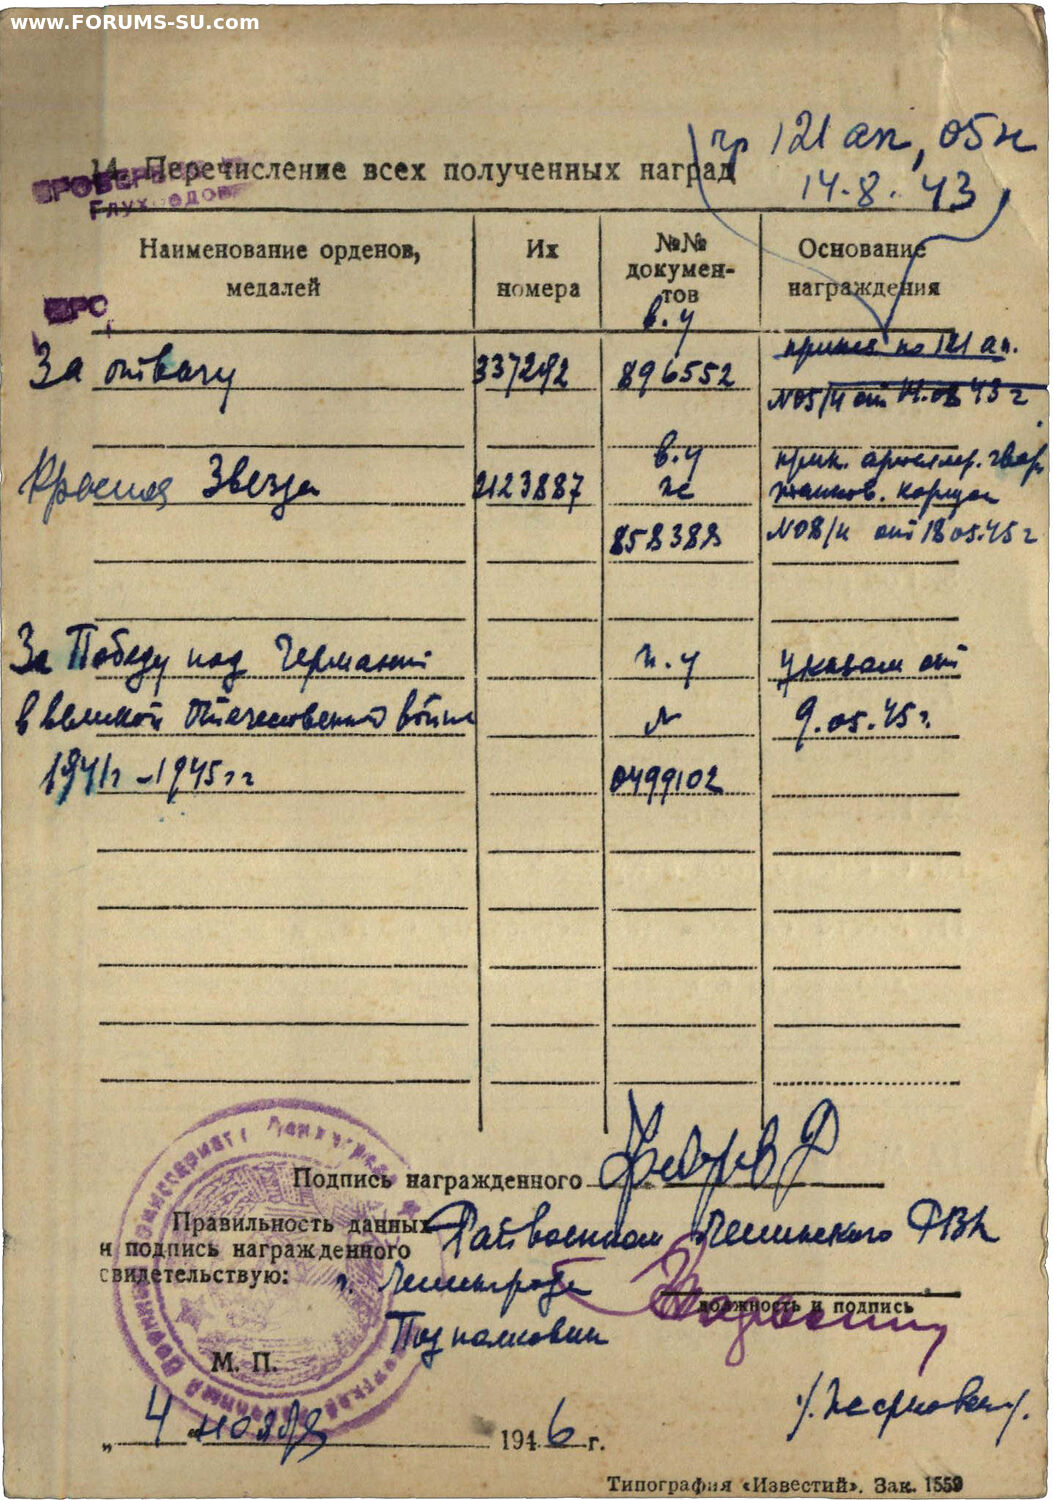 www.FORUMS-SU.com
пр 121 ап, 05н
14.8.43
14. Перечисление всех полученных наград
ПРОВЕРЕНО
Наименование орденов, медалей
Их номера
№№ документов
Основание награждения
За отвагу
337292
в.у
896552
приказ по 121 ап.
№05/н от 14.08 43 г
Красная Звезда
2123887
в.у
же
858388
прик. артиллер. гвар
танков. корпуса
№08/н от 18 05.45 г
За Победу над Германией
в великой Отечественной войне
1941г - 1945 г г
н.у
№
0499102
указом от
9.05.45 г.
Подпись награжденного
Правильность данных
и подпись награжденного
свидетельствую:
Райвоенком Ленинского РВК
г. Ленинграда
должность и подпись
Подполковник
М. П.
„ 4 “ ноября 1946 г.
Типография «Известий». Зак. 1559